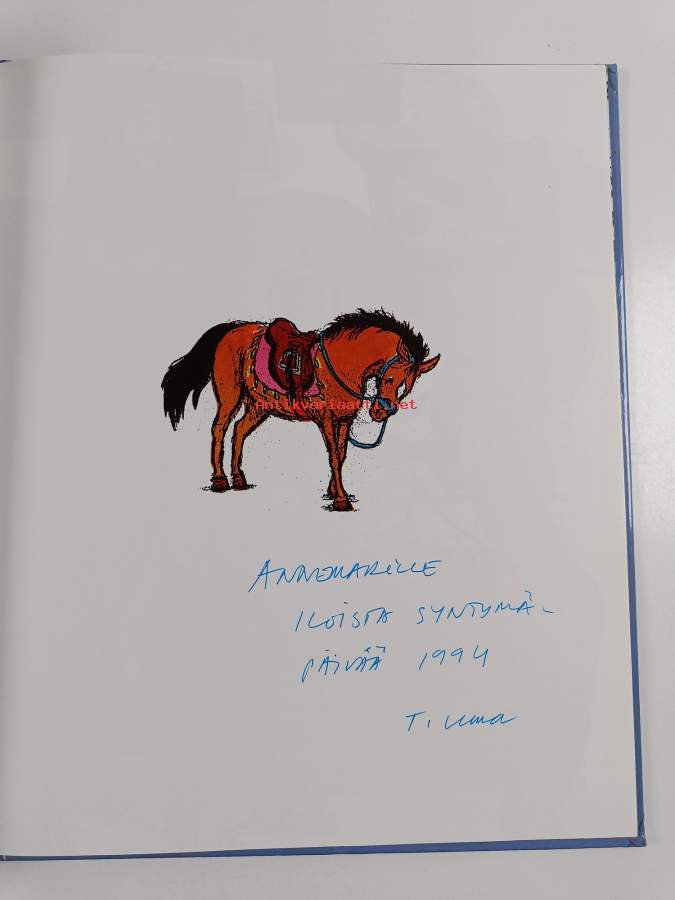 Antikvariaatti.net
ANNEMARILLE
ILOISTA SYNTYMÄ-
PÄIVÄÄ 1994
T.